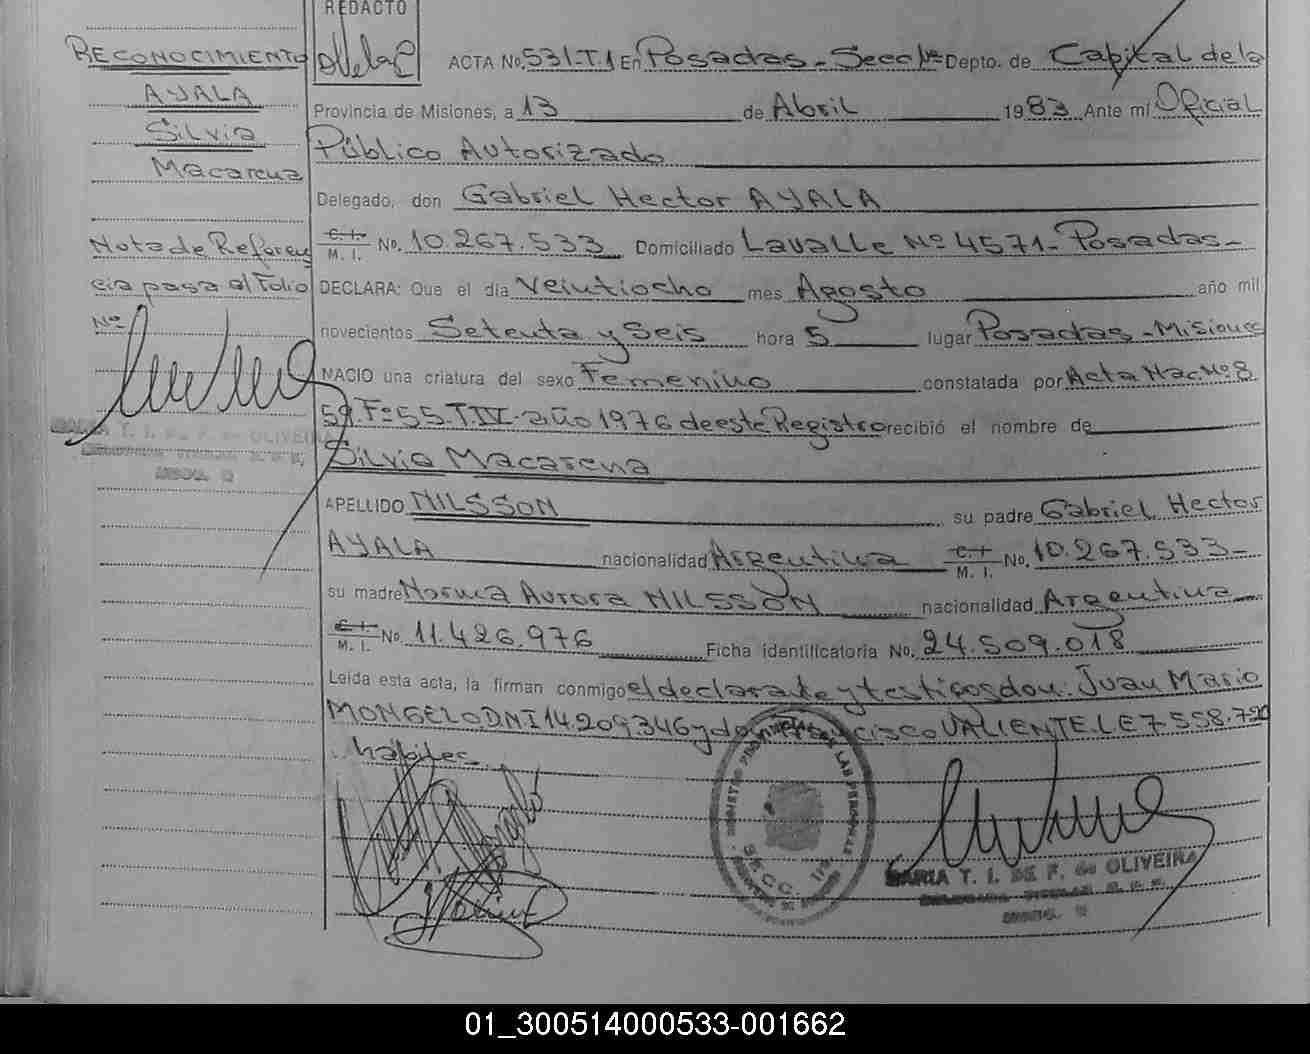 REDACTO
RECONOCIMIENTO
AYALA
Silvia
Macarena
Nota de Referen
cia pasa al Folio
Nº
ACTA No. 531-T.1 En Posadas - Secc 1ª Depto. de Capital de la
Provincia de Misiones, a 13 de Abril 1983 Ante mí Oficial
Público Autorizado
Delegado, don Gabriel Hector AYALA
C. I. M. I. No. 10.267.533 Domiciliado Lavalle Nº 4571 - Posadas -
DECLARA: Que el día Veintiocho mes Agosto año mil
novecientos Setenta y Seis hora 5 lugar Posadas - Misiones
NACIO una criatura del sexo Femenino constatada por Acta Nac Nº 8
59. Fº 55. T.IV. año 1976 de este Registro recibió el nombre de
Silvia Macarena
APELLIDO NILSSON su padre Gabriel Hector
AYALA nacionalidad Argentina C. I. M. I. No. 10.267.533 -
su madre Norma Aurora NILSSON nacionalidad Argentina
C. I. M. I. No. 11.426.976 Ficha identificatoria No. 24.509.018
Leída esta acta, la firman conmigo el declarante y testigos don: Juan Mario
MONGELO. DNI 14.209.346 y don Francisco VALIENTE. LE 7.558.720
hábiles.
MARIA T. I. DE F. de OLIVEIRA
DELEGADA TITULAR
SECC.
01_300514000533-001662